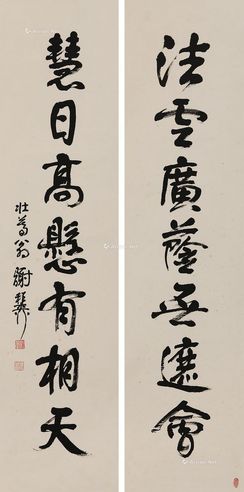 法雲廣蔭無遮會
慧日高懸有相天
壮暮翁謝稚